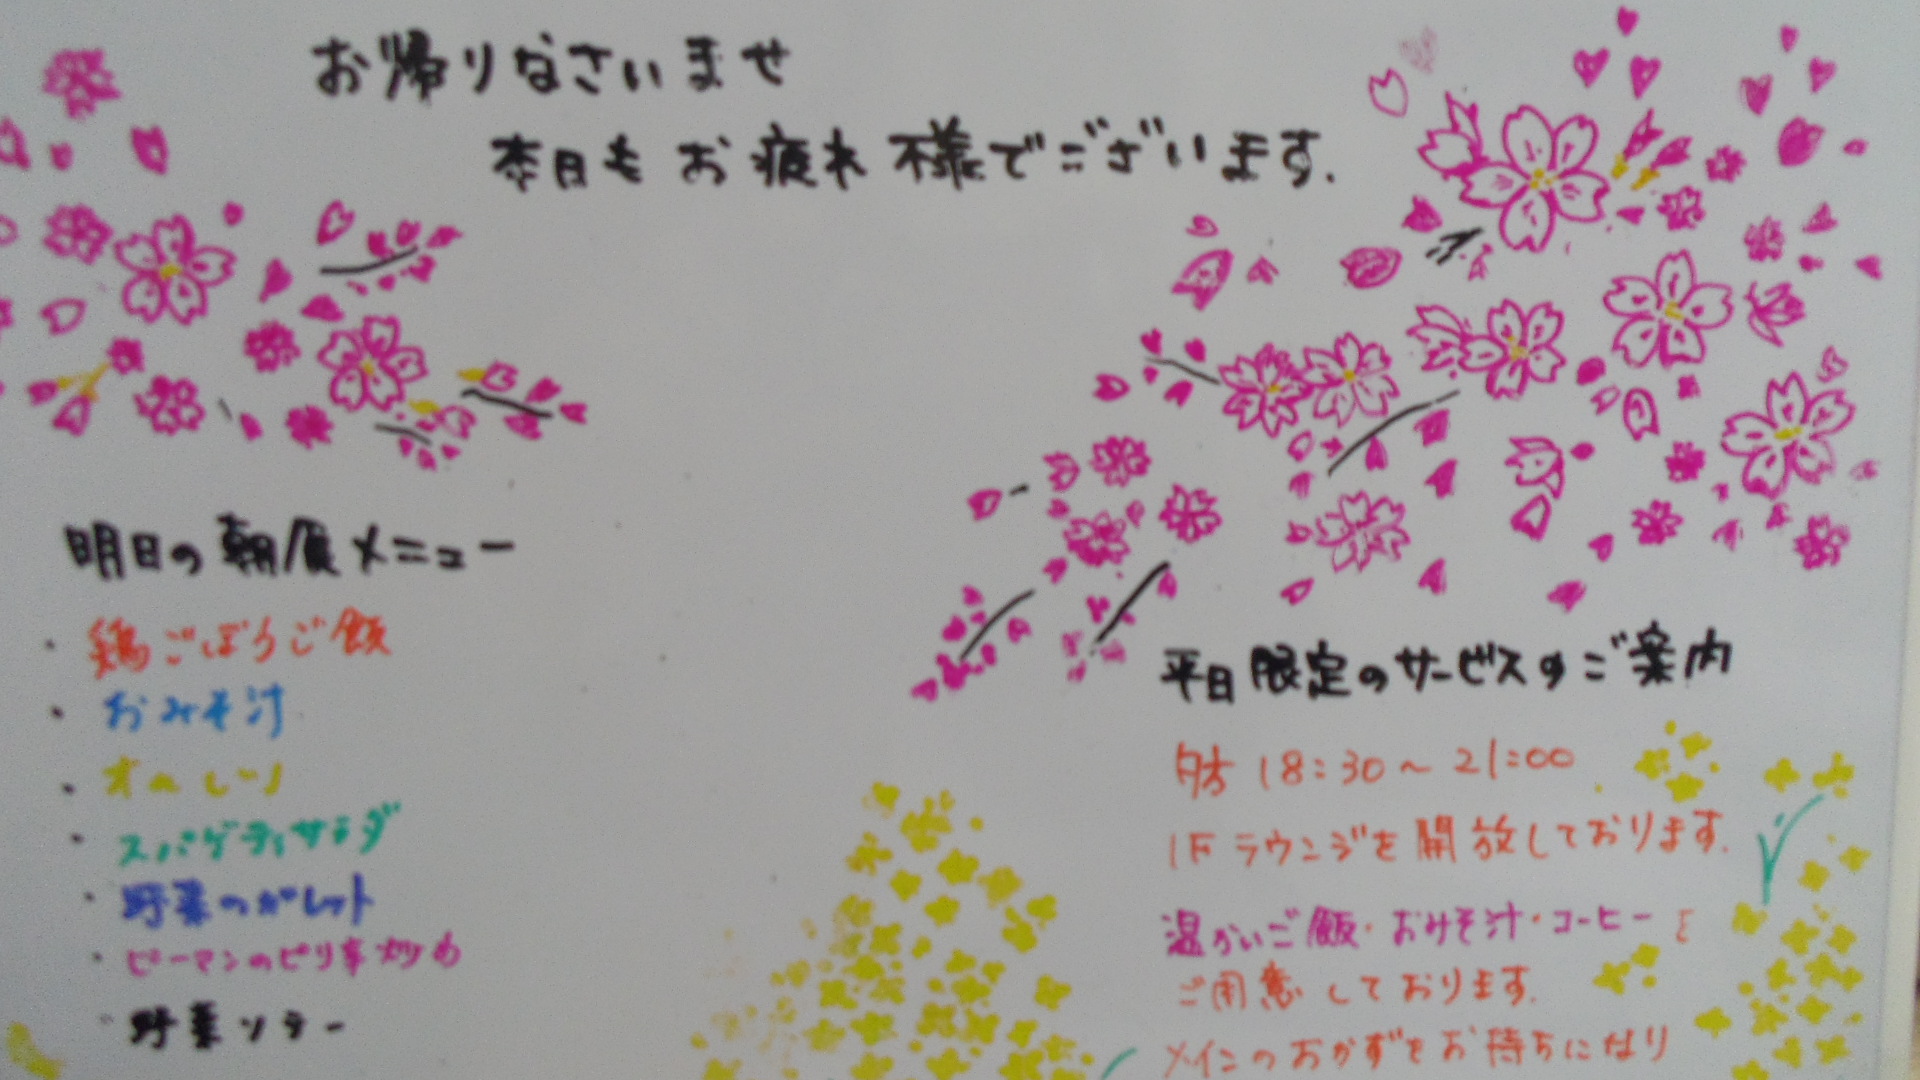 お帰りなさいませ
本日もお疲れ様でございます.
明日の朝食メニュー
・鶏ごぼうご飯
・おみそ汁
・オムレツ
・スパゲティサラダ
・野菜のガレット
・ピーマンのピリ辛炒め
・野菜ソテー
平日限定のサービスのご案内
夕方 18:30~21:00
1Fラウンジを開放しております.
温かいご飯・おみそ汁・コーヒーを
ご用意しております.
メインのおかずをお持ちになり